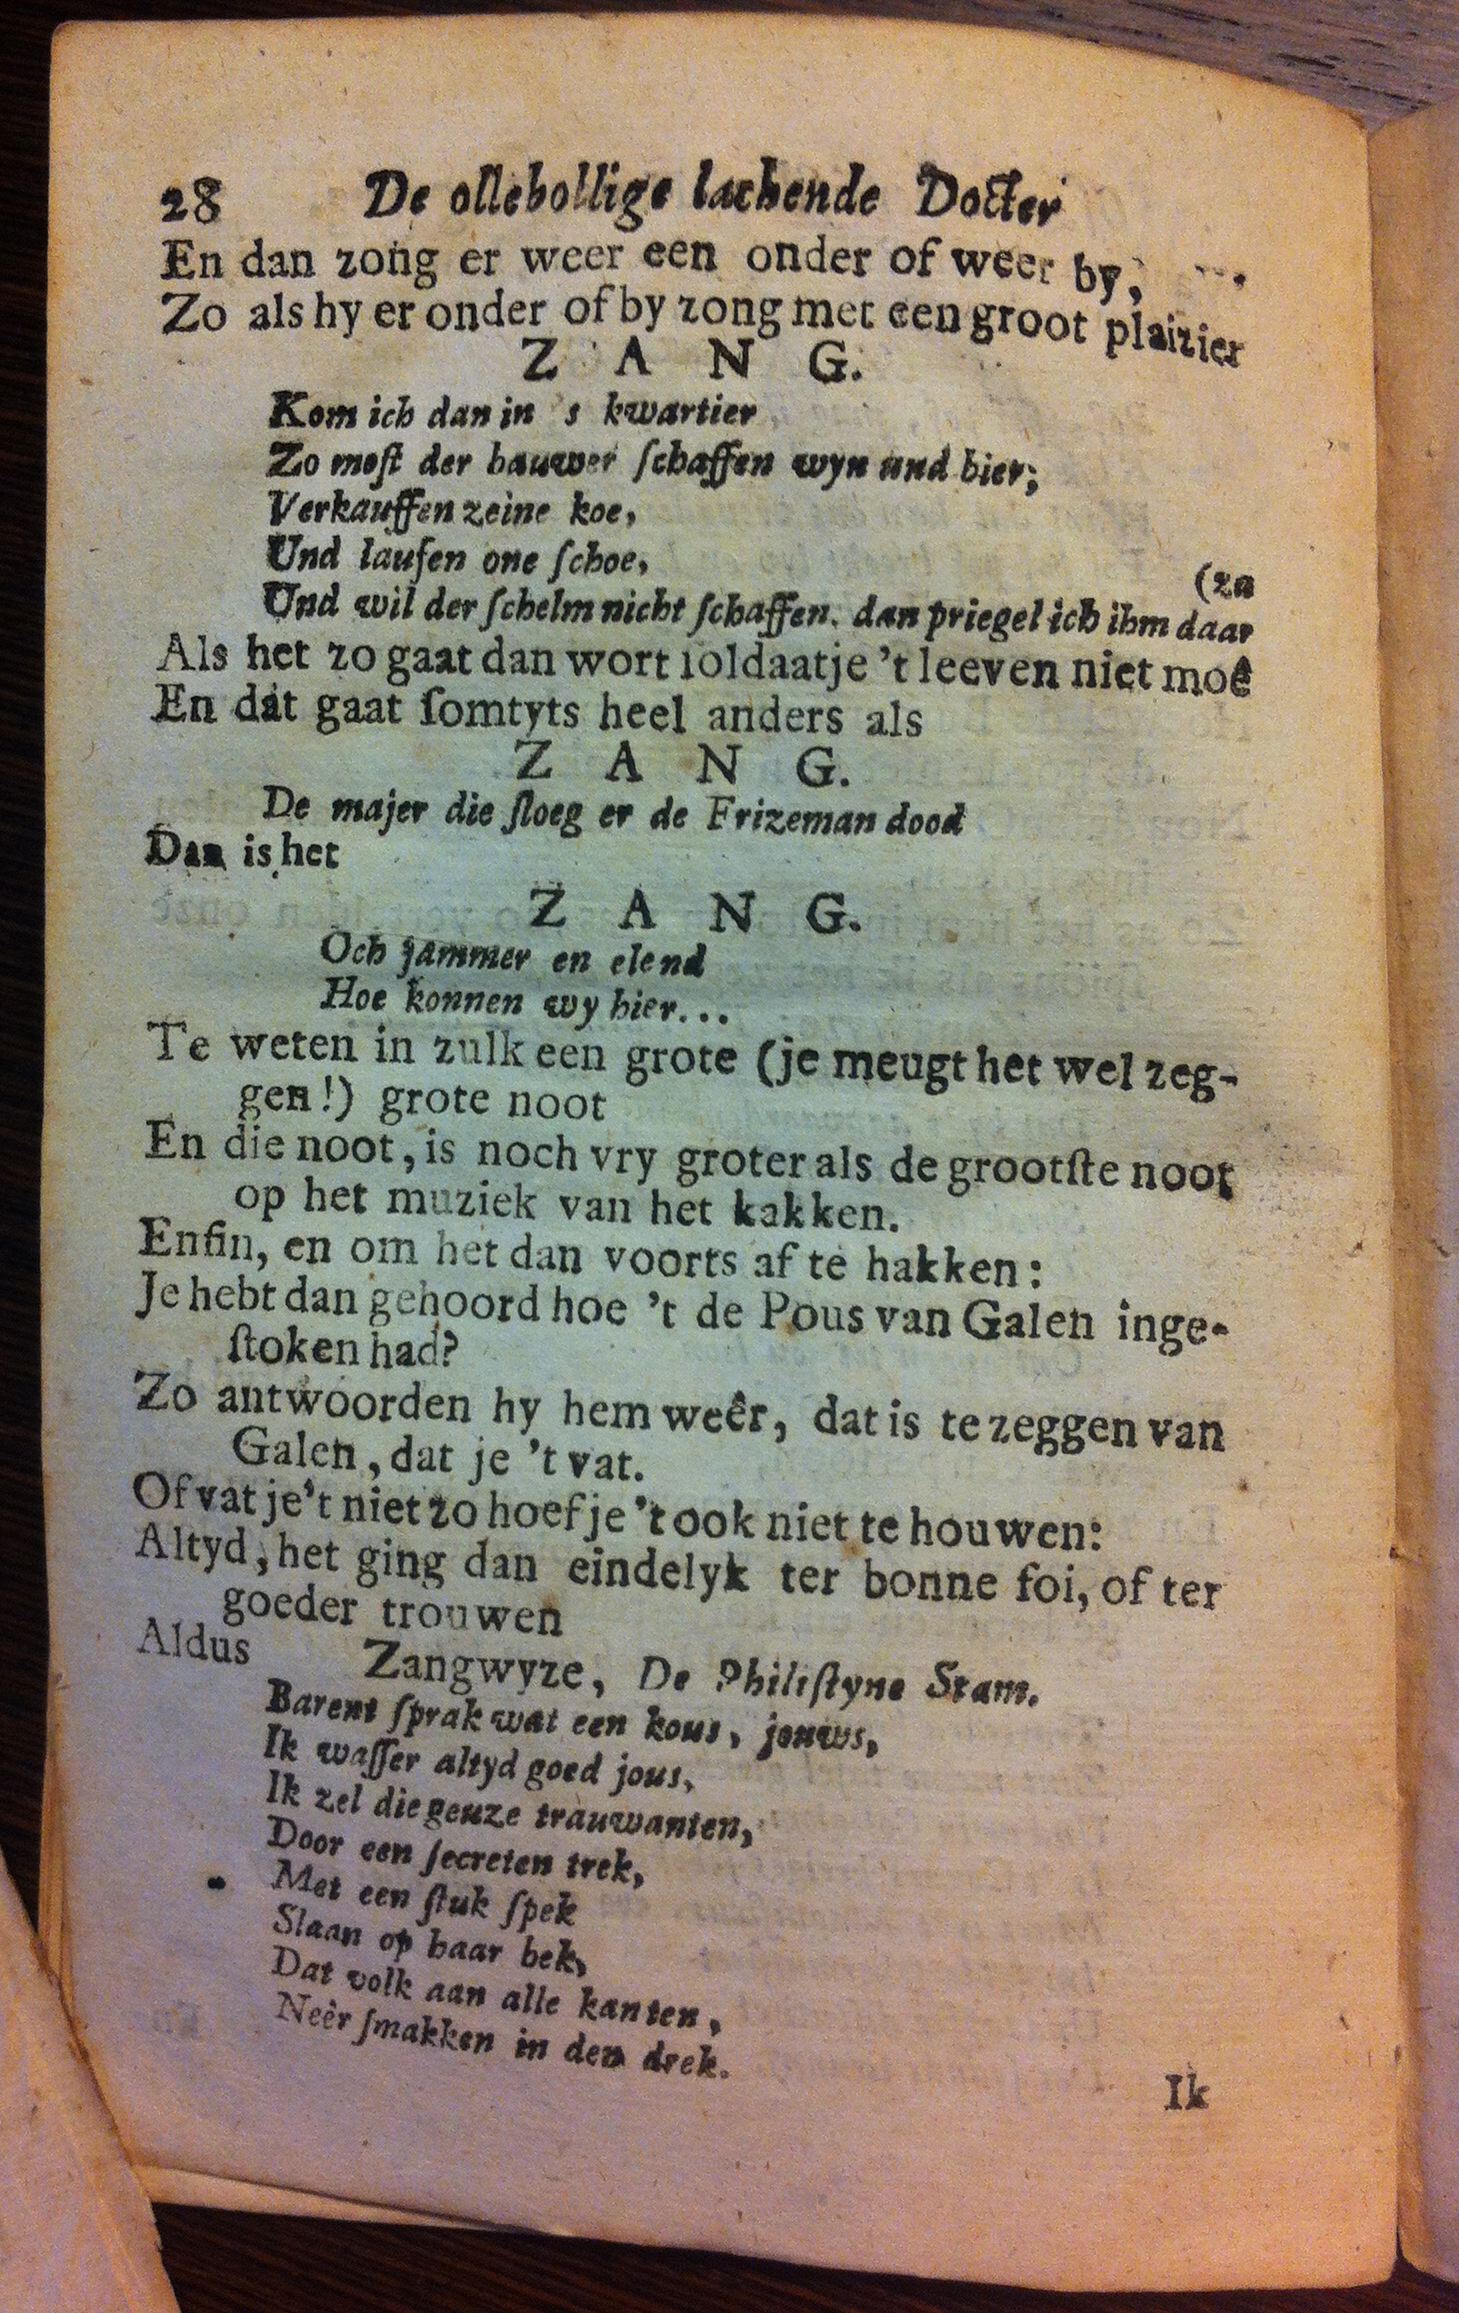 28 De ollebollige lachende Docter
En dan zong er weer een onder of weer by,
Zo als hy er onder of by zong met een groot plaizier
Z A N G.
Kom ich dan in 's kwartier
Zo most der bauwer ſchaffen wyn und bier;
Verkauffen zeine koe,
Und laufen one ſchoe,
(za
Und wil der ſchelm nicht ſchaffen. dan priegel ich ihm daar
Als het zo gaat dan wort ſoldaatje 't leeven niet moê
En dat gaat ſomtyts heel anders als
Z A N G.
De majer die ſloeg er de Frizeman dood
Dan is het
Z A N G.
Och jammer en elend
Hoe konnen wy hier...
Te weten in zulk een grote (je meugt het wel zeg-
gen!) grote noot
En die noot, is noch vry groter als de grootſte noot
op het muziek van het kakken.
Enfin, en om het dan voorts af te hakken:
Je hebt dan gehoord hoe 't de Pous van Galen inge-
ſtoken had?
Zo antwoorden hy hem weêr, dat is te zeggen van
Galen, dat je 't vat.
Of vat je 't niet zo hoef je 't ook niet te houwen:
Altyd, het ging dan eindelyk ter bonne foi, of ter
goeder trouwen
Aldus Zangwyze, De Philiſtyne Stam.
Barent ſprak wat een kous, jouws,
Ik waſſer altyd goed jous,
Ik zel die geuze trauwanten,
Door een ſecreten trek,
Met een ſtuk ſpek
Slaan op haar bek,
Dat volk aan alle kanten,
Neêr ſmakken in den drek.
Ik